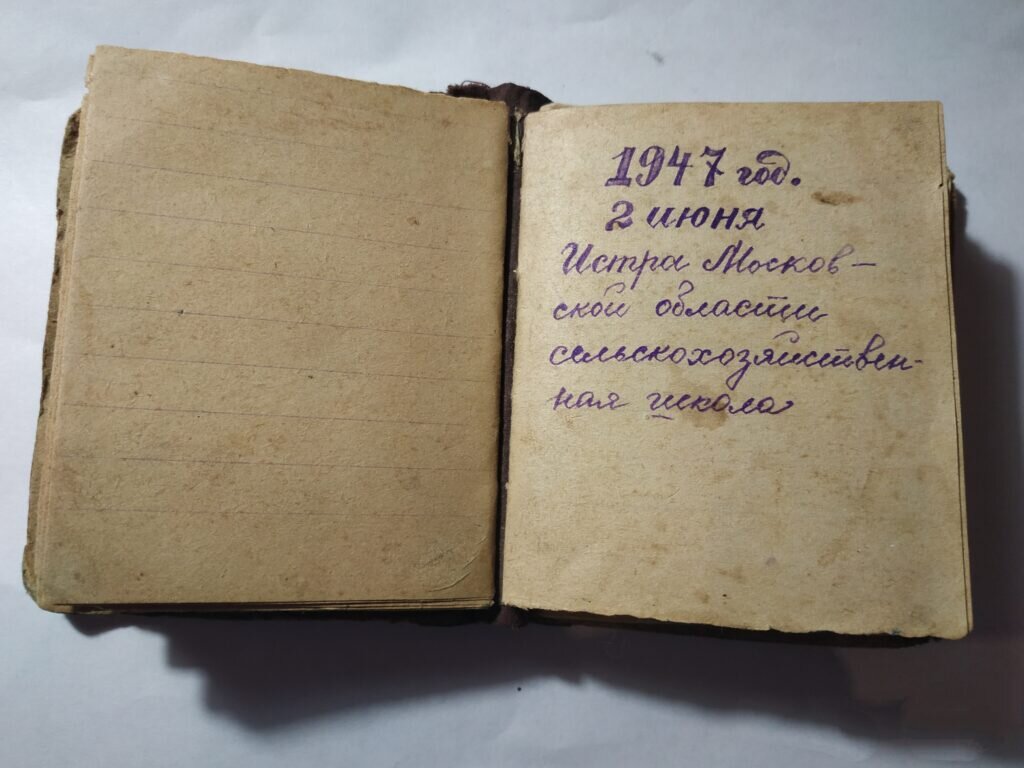 1947 год.
2 июня
Истра Москов-
ской области
сельскохозяйствен-
ная школа